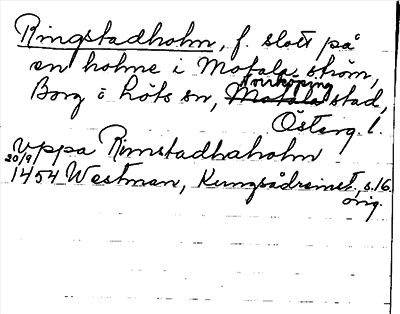 Ringstadholm, f. slott på
en holme i Motala ström,
Norrköping
Borg o Löts sn, Motala stad,
Österg. l.
uppa Rimstadhaholm
20/9
1454 Westman, Kungsådreinst, s. 16
orig.